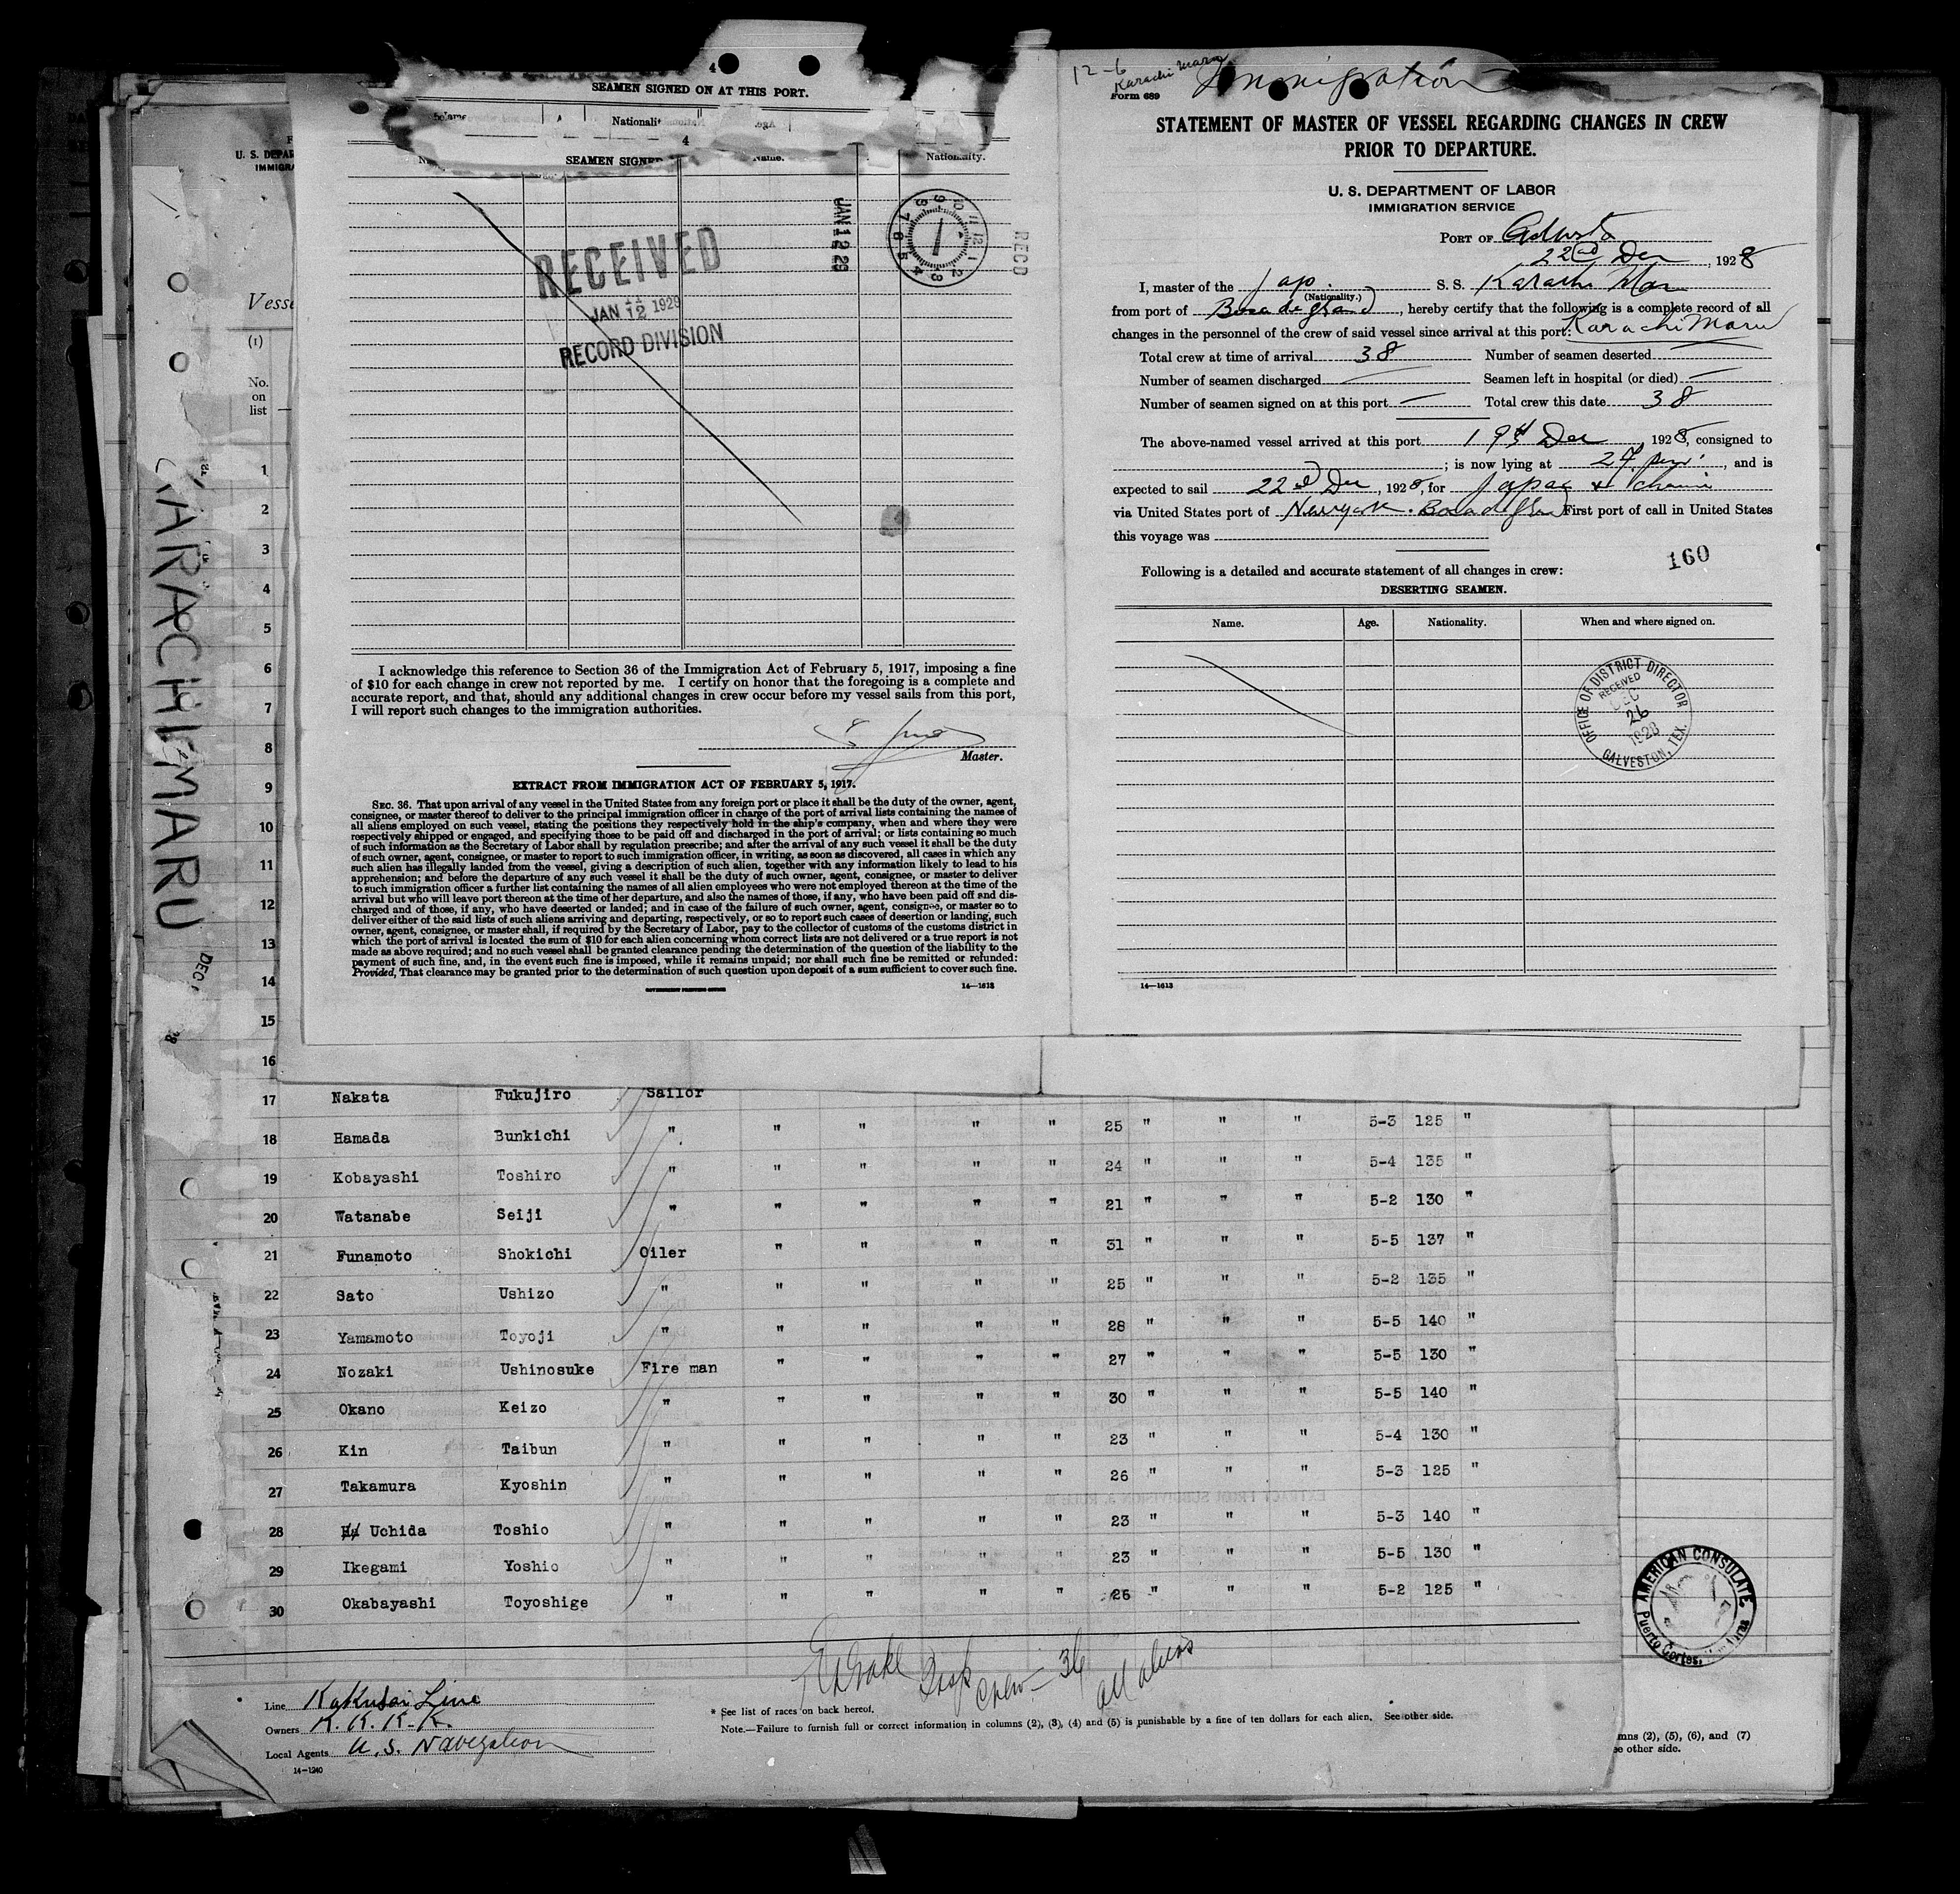 4
SEAMEN SIGNED ON AT THIS PORT.
Nationali
4
SEAMEN SIGNED
Name.
Nationality.
RECEIVED
JAN 12 1929
RECORD DIVISION
JAN 12 29
RECD
I acknowledge this reference to Section 36 of the Immigration Act of February 5, 1917, imposing a fine
of $10 for each change in crew not reported by me. I certify on honor that the foregoing is a complete and
accurate report, and that, should any additional changes in crew occur before my vessel sails from this port,
I will report such changes to the immigration authorities.
Master.
EXTRACT FROM IMMIGRATION ACT OF FEBRUARY 5, 1917.
SEC. 36. That upon arrival of any vessel in the United States from any foreign port or place it shall be the duty of the owner, agent,
consignee, or master thereof to deliver to the principal immigration officer in charge of the port of arrival lists containing the names of
all aliens employed on such vessel, stating the positions they respectively hold in the ship's company, when and where they were
respectively shipped or engaged, and specifying those to be paid off and discharged in the port of arrival; or lists containing so much
of such information as the Secretary of Labor shall by regulation prescribe; and after the arrival of any such vessel it shall be the duty
of such owner, agent, consignee, or master to report to such immigration officer, in writing, as soon as discovered, all cases in which any
such alien has illegally landed from the vessel, giving a description of such alien, together with any information likely to lead to his
apprehension; and before the departure of any such vessel it shall be the duty of such owner, agent, consignee, or master to deliver
to such immigration officer a further list containing the names of all alien employees who were not employed thereon at the time of the
arrival but who will leave port thereon at the time of her departure, and also the names of those, if any, who have been paid off and dis-
charged and of those, if any, who have deserted or landed; and in case of the failure of such owner, agent, consignee, or master so to
deliver either of the said lists of such aliens arriving and departing, respectively, or so to report such cases of desertion or landing, such
owner, agent, consignee, or master shall, if required by the Secretary of Labor, pay to the collector of customs of the customs district in
which the port of arrival is located the sum of $10 for each alien concerning whom correct lists are not delivered or a true report is not
made as above required; and no such vessel shall be granted clearance pending the determination of the question of the liability to the
payment of such fine, and, in the event such fine is imposed, while it remains unpaid; nor shall such fine be remitted or refunded:
Provided, That clearance may be granted prior to the determination of such question upon deposit of a sum sufficient to cover such fine.
GOVERNMENT PRINTING OFFICE
14—1613
12-6
Karachi Maru
Immigration
Form 689
STATEMENT OF MASTER OF VESSEL REGARDING CHANGES IN CREW
PRIOR TO DEPARTURE.
U. S. DEPARTMENT OF LABOR
IMMIGRATION SERVICE
PORT OF
22nd Dec, 1928
I, master of the Jap. S. S. Karachi Maru
(Nationality.)
from port of Boca de Grand, hereby certify that the following is a complete record of all
changes in the personnel of the crew of said vessel since arrival at this port: Karachi Maru
Total crew at time of arrival 38 Number of seamen deserted —
Number of seamen discharged — Seamen left in hospital (or died) —
Number of seamen signed on at this port — Total crew this date 38
The above-named vessel arrived at this port 19th Dec, 1928, consigned to
; is now lying at 24, and is
expected to sail 22nd Dec, 1928, for Japan &
via United States port of Newyork. First port of call in United States
this voyage was
160
Following is a detailed and accurate statement of all changes in crew:
DESERTING SEAMEN.
Name. Age. Nationality. When and where signed on.
OFFICE OF DISTRICT DIRECTOR
RECEIVED
DEC
26
1928
GALVESTON, TEX.
14—1613
U. S. DEPAR
IMMIGRA
Vesse
(1)
No.
on
list
KARACHI MARU
DEC
28
1
2
3
4
5
6
7
8
9
10
11
12
13
14
15
16
17 Nakata Fukujiro Sailor
18 Hamada Bunkichi " " " " " 25 " " " 5-3 125 "
19 Kobayashi Toshiro " " " " " 24 " " " 5-4 135 "
20 Watanabe Seiji " " " " " 21 " " " 5-2 130 "
21 Funamoto Shokichi Oiler " " " " 31 " " " 5-5 137 "
22 Sato Ushizo " " " " " 25 " " " 5-2 135 "
23 Yamamoto Toyoji " " " " " 28 " " " 5-5 140 "
24 Nozaki Ushinosuke Fire man " " " " 27 " " " 5-5 130 "
25 Okano Keizo " " " " " 30 " " " 5-5 140 "
26 Kin Taibun " " " " " 23 " " " 5-4 130 "
27 Takamura Kyoshin " " " " " 26 " " " 5-3 125 "
28 Uchida Toshio " " " " " 23 " " " 5-3 140 "
29 Ikegami Yoshio " " " " " 23 " " " 5-5 130 "
30 Okabayashi Toyoshige " " " " " 26 " " " 5-2 125 "
crew — 36 all aliens
Line Kokusai Line
Owners K. K. K. K.
Local Agents U. S. Navigation
14—1240
* See list of races on back hereof.
Note.—Failure to furnish full or correct information in columns (2), (3), (4) and (5) is punishable by a fine of ten dollars for each alien. See other side.
AMERICAN CONSULATE
Puerto Cortes,
mns (2), (5), (6), and (7)
ee other side.